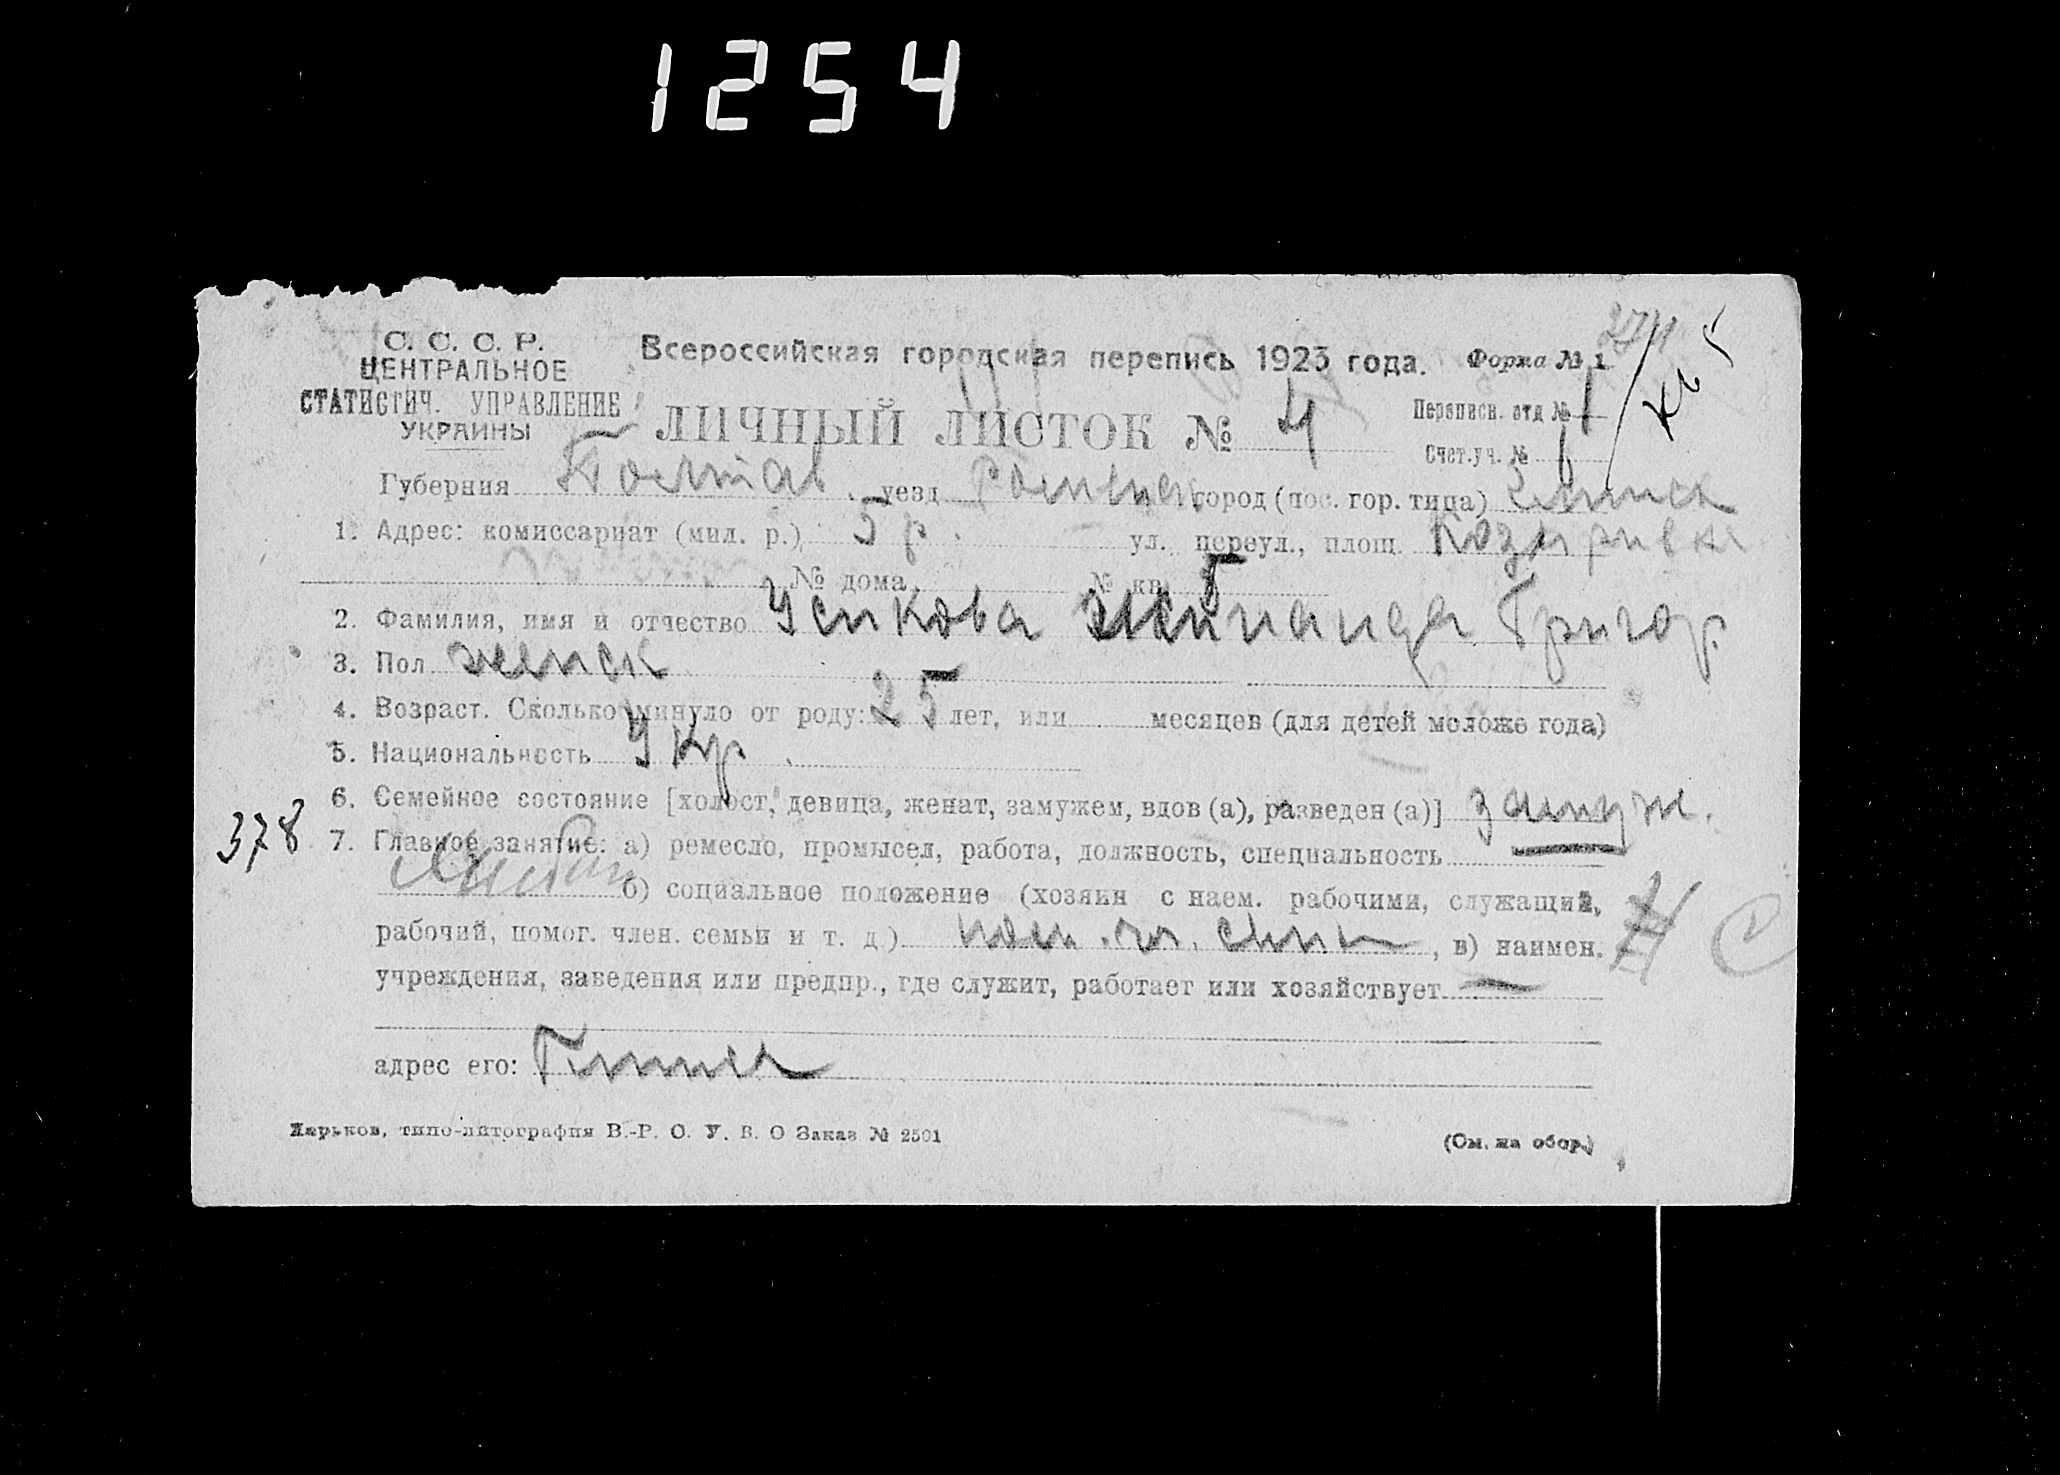 1254
С. С. С. Р.
ЦЕНТРАЛЬНОЕ
СТАТИСТИЧ. УПРАВЛЕНИЕ
УКРАИНЫ
Всероссийская городская перепись 1923 года. Форма № 1
ЛИЧНЫЙ ЛИСТОК № 4
Переписн. отд № 1
Счет.уч. № 1
Губерния Полтав. уезд Роменск город (пос. гор. типа)
1. Адрес: комиссариат (мил. р.) 5 р. ул. переул., площ.
№ дома № кв. 5
2. Фамилия, имя и отчество Усикова Григор.
3. Пол женск
4. Возраст. Сколько минуло от роду: 25 лет, или месяцев (для детей моложе года)
5. Национальность Укр.
6. Семейное состояние [холост, девица, женат, замужем, вдов (а), разведен (а)] замуж.
378
7. Главное занятие: а) ремесло, промысел, работа, должность, специальность
б) социальное положение (хозяин с наем. рабочими, служащий,
рабочий, помог. член. семьи и т. д.) пом. чл. , в) наимен.
учреждения, заведения или предпр., где служит, работает или хозяйствует —
адрес его:
Харьков, типо-литография В.-Р. О. У. В. О Заказ № 2501
(См. на обор.)